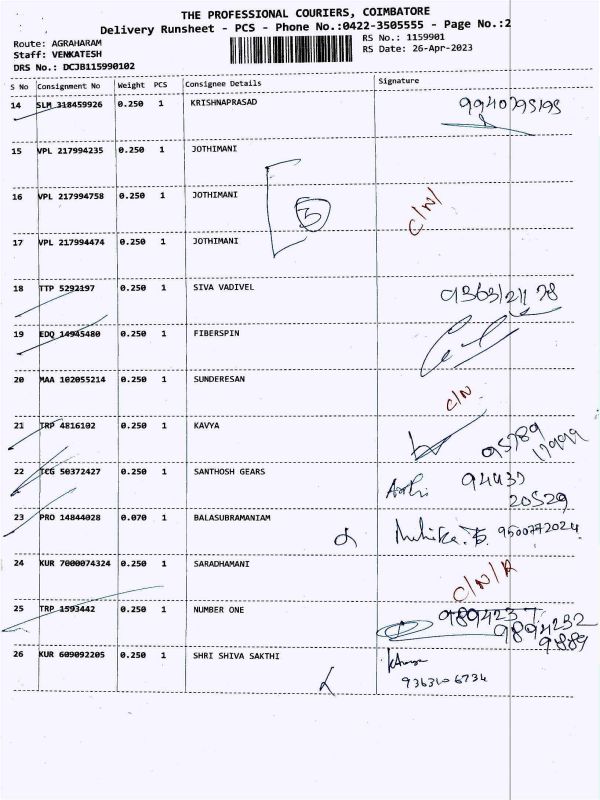 THE PROFESSIONAL COURIERS, COIMBATORE
Delivery Runsheet - PCS - Phone No.:0422-3505555 - Page No.:2
Route: AGRAHARAM
RS No.: 1159901
Staff: VENKATESH
RS Date: 26-Apr-2023
DRS No.: DCJB115990102
S No Consignment No Weight PCS Consignee Details Signature
14 SLM 318459926 0.250 1 KRISHNAPRASAD
15 VPL 217994235 0.250 1 JOTHIMANI
16 VPL 217994758 0.250 1 JOTHIMANI
C/N/
17 VPL 217994474 0.250 1 JOTHIMANI
18 TTP 5292197 0.250 1 SIVA VADIVEL
19 EDQ 14945480 0.250 1 FIBERSPIN
20 MAA 102055214 0.250 1 SUNDERESAN
C/N.
21 TRP 4816102 0.250 1 KAVYA
22 TCG 50372427 0.250 1 SANTHOSH GEARS
94437
20529
23 PRO 14844028 0.070 1 BALASUBRAMANIAM
9500772024
24 KUR 7000074324 0.250 1 SARADHAMANI
C/N/R
25 TRP 1593442 0.250 1 NUMBER ONE
9894237
9894232
9889
26 KUR 609092205 0.250 1 SHRI SHIVA SAKTHI
9363106734